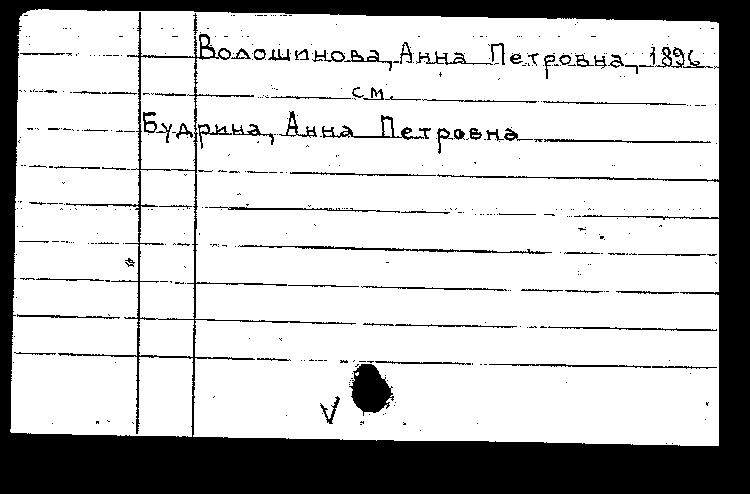 Волошинова, Анна Петровна, 1896
см.
Будрина, Анна Петровна
V